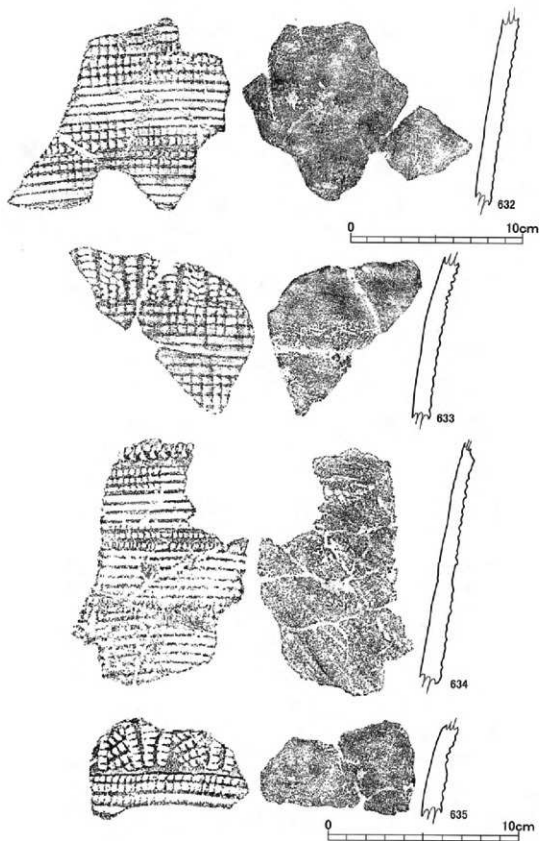 632
0 10cm
633
634
635
0 10cm